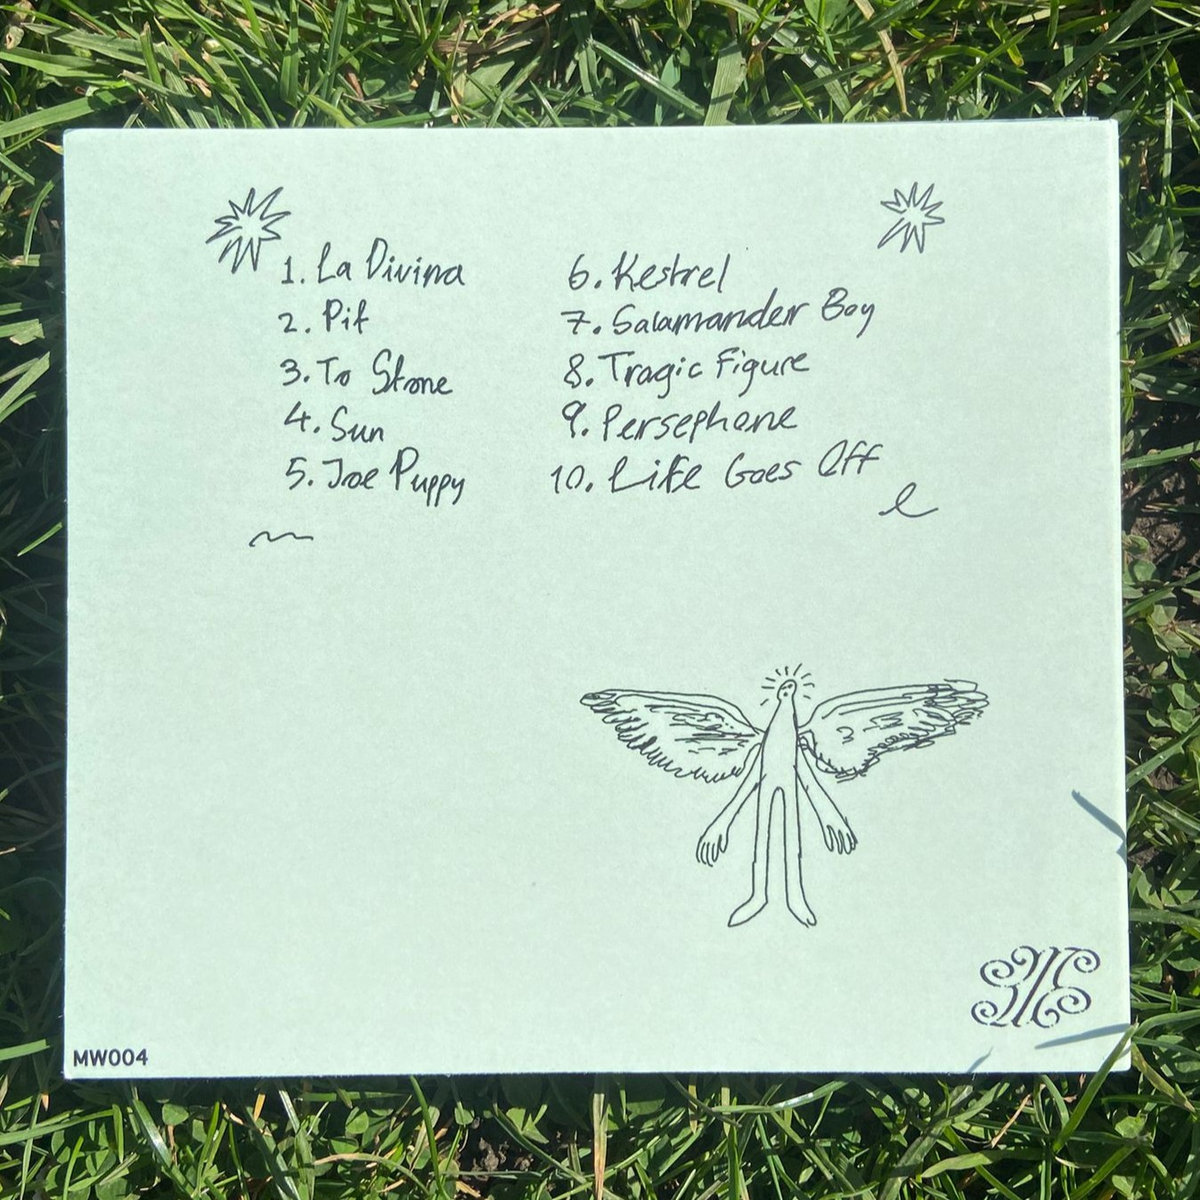 1. La Divina
2. Pit
3. To Stone
4. Sun
5. Joe Puppy
6. Kestrel
7. Salamander Boy
8. Tragic Figure
9. Persephone
10. Life Goes Off
MW004